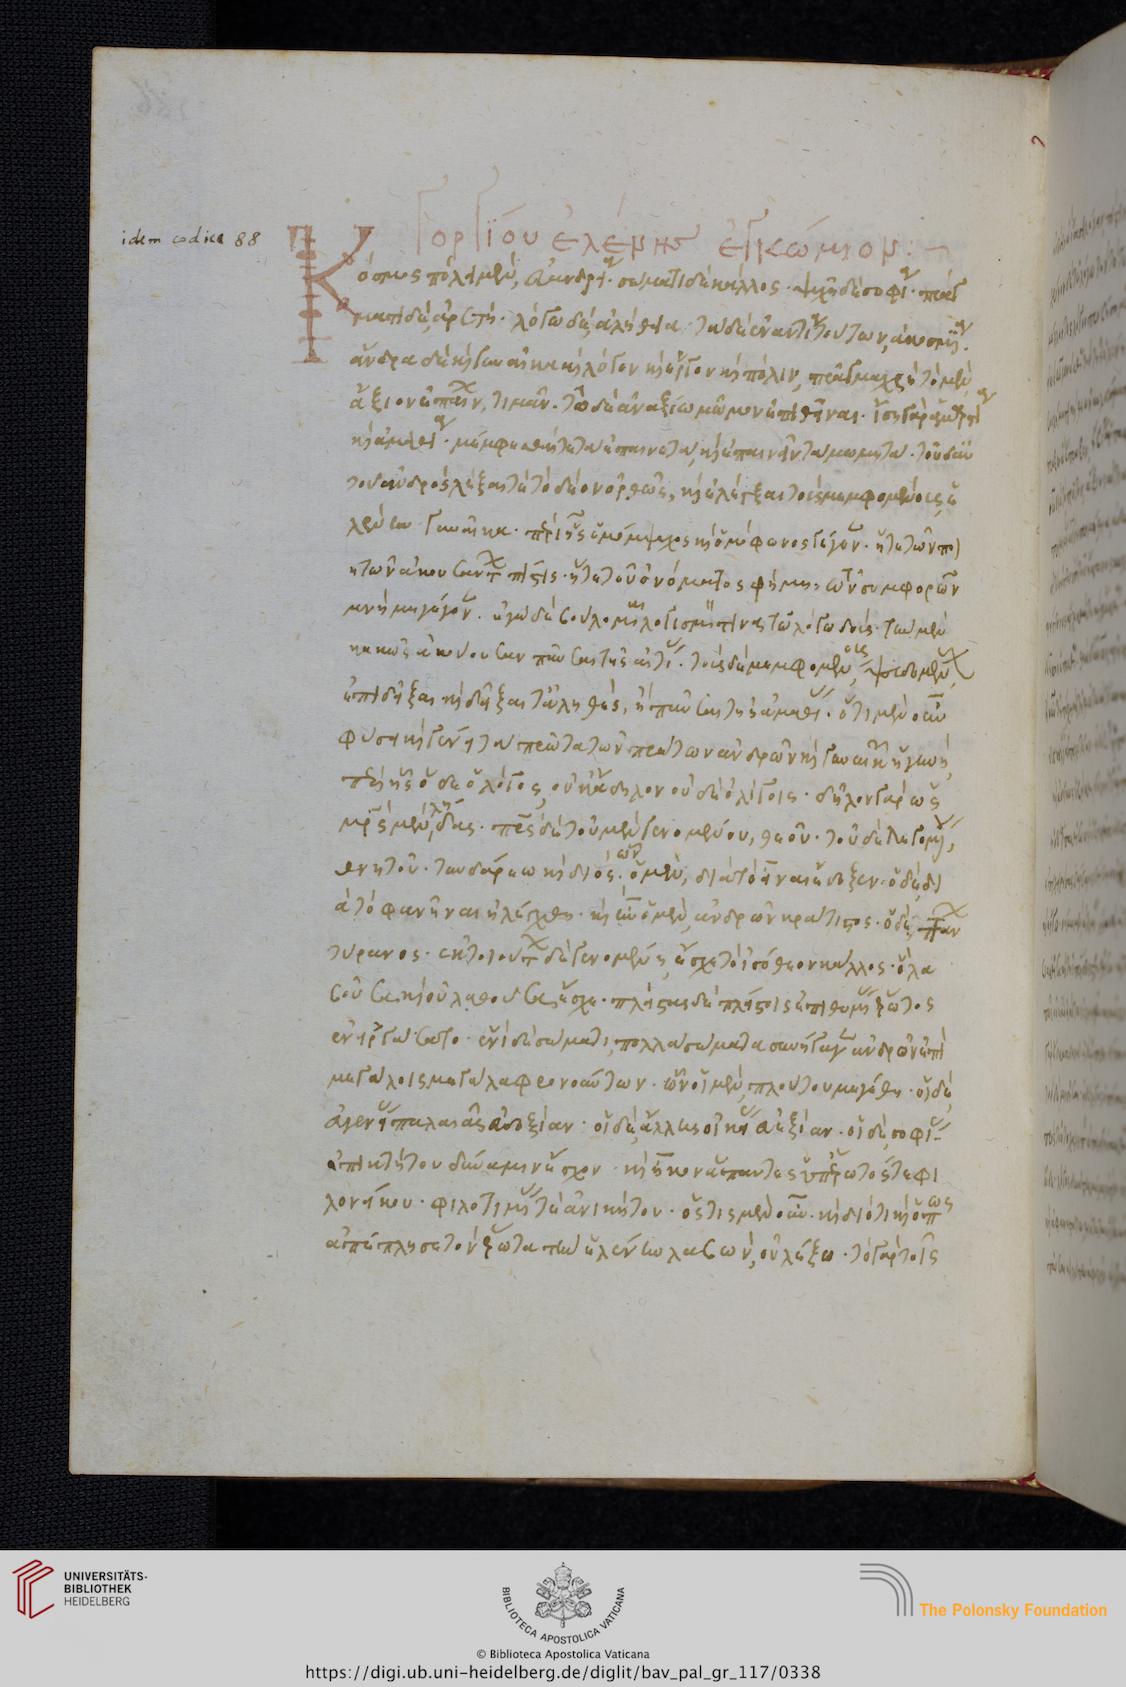 idem codice 88
Γοργίου ἑλένης ἐγκώμιον:
Κόσμος πόλει μὲν, εὐανδρία· σώματι δὲ κάλλος· ψυχῇ δὲ σοφία· πράγ
ματι δὲ, ἀρετή· λόγω δὲ, ἀλήθεια. τὰ δὲ ἐναντία τούτων, ἀκοσμία.
ἄνδρα δὲ καὶ γυναῖκα καὶ λόγον καὶ ἔργον καὶ πόλιν, πρᾶγμα χρὴ τὸ μὲν
ἄξιον ἐπαίν, τιμᾶν. τῶ δὲ ἀναξίω μῶμον ἐπιθεῖναι. ἴση γὰρ ἁμαρτία
καὶ ἀμαθία· μέμφεσθαί τε τὰ ἐπαινετὰ, καὶ ἐπαινεῖν τὰ μωμητά. τοῦ δ' αὐ
τοῦ ἀνδρὸς λέξαι τὲ τὸ δέον ὀρθῶς, καὶ ἐλέγξαι τοὺς μεμφομένους ἑ
λένην γυναῖκα· περὶ ἧς ὁμόψυχος καὶ ὁμόφωνος γέγονεν· ἥτε τῶν ποι
ητῶν ἀκουσάντων πίστις· ἥτε τοῦ ὀνόματος φήμη, ὃ τῶν συμφορῶν
μνήμη γέγονεν. ἐγὼ δὲ βούλομαι λογισμόν τινα τῶ λόγω δοὺς· τὴν μὲν
κακῶς ἀκούουσαν παῦσαι τῆς αἰτίας. τοὺς δὲ μεμφομένους, ψευδομένους
ἐπιδεῖξαι καὶ δεῖξαι τἀληθὲς, ἢ παῦσαι τῆς ἀμαθίας. ὅτι μὲν οὖν
φύσει καὶ γένει τὰ πρῶτα τῶν πρώτων ἀνδρῶν καὶ γυναικῶν ἡ γυνὴ,
περὶ ἧς ὅδε ὁ λόγος, οὐκ ἄδηλον οὐδὲ ὀλίγοις. δῆλον γὰρ ὡς
μητρὸς μὲν, λήδας· πατρὸς δὲ τοῦ μὲν γενομένου, θεοῦ· τοῦ δὲ λεγομένου,
θνητοῦ· τυνδάρεω καὶ διός. ὧν ὁ μὲν, διὰ τὸ εἶναι ἔδοξεν· ὁ δὲ, δι
ὰ τὸ φανῆναι ἠλέγχθη· καὶ ἦν ὁ μὲν, ἀνδρῶν κράτιστος· ὁ δὲ, πάντων
τύραννος. ἐκ τοιούτων δὲ γενομένη, ἔσχε τὸ ἰσόθεον κάλλος· ὃ λα
βοῦσα καὶ οὐ λαθοῦσα ἔσχε. πλείστας δὲ πλείστοις ἐπιθυμίας ἔρωτος
ἐνειργάσατο. ἑνὶ δὲ σώματι, πολλὰ σώματα συνήγαγεν ἀνδρῶν ἐπὶ
μεγάλοις μεγάλα φρονούντων. ὧν οἱ μὲν, πλούτου μεγέθη· οἱ δὲ,
εὐγενείας παλαιᾶς εὐδοξίαν· οἱ δὲ, ἄλλης οἰκείας εὐεξίαν· οἱ δὲ, σοφίας
ἐπικτήτου δύναμιν ἔσχον· καὶ ἧκον ἅπαντες ὑπ' ἔρωτός τε φι
λονείκου· φιλοτιμίας τε ἀνικήτου. ὅστις μὲν οὖν· καὶ διότι καὶ ὅπως
ἀπέπλησε τὸν ἔρωτα τὴν ἑλένην λαβὼν, οὐ λέξω. τὸ γὰρ τοῖς
UNIVERSITÄTS-
BIBLIOTHEK
HEIDELBERG
BIBLIOTECA APOSTOLICA VATICANA
The Polonsky Foundation
© Biblioteca Apostolica Vaticana
https://digi.ub.uni-heidelberg.de/diglit/bav_pal_gr_117/0338